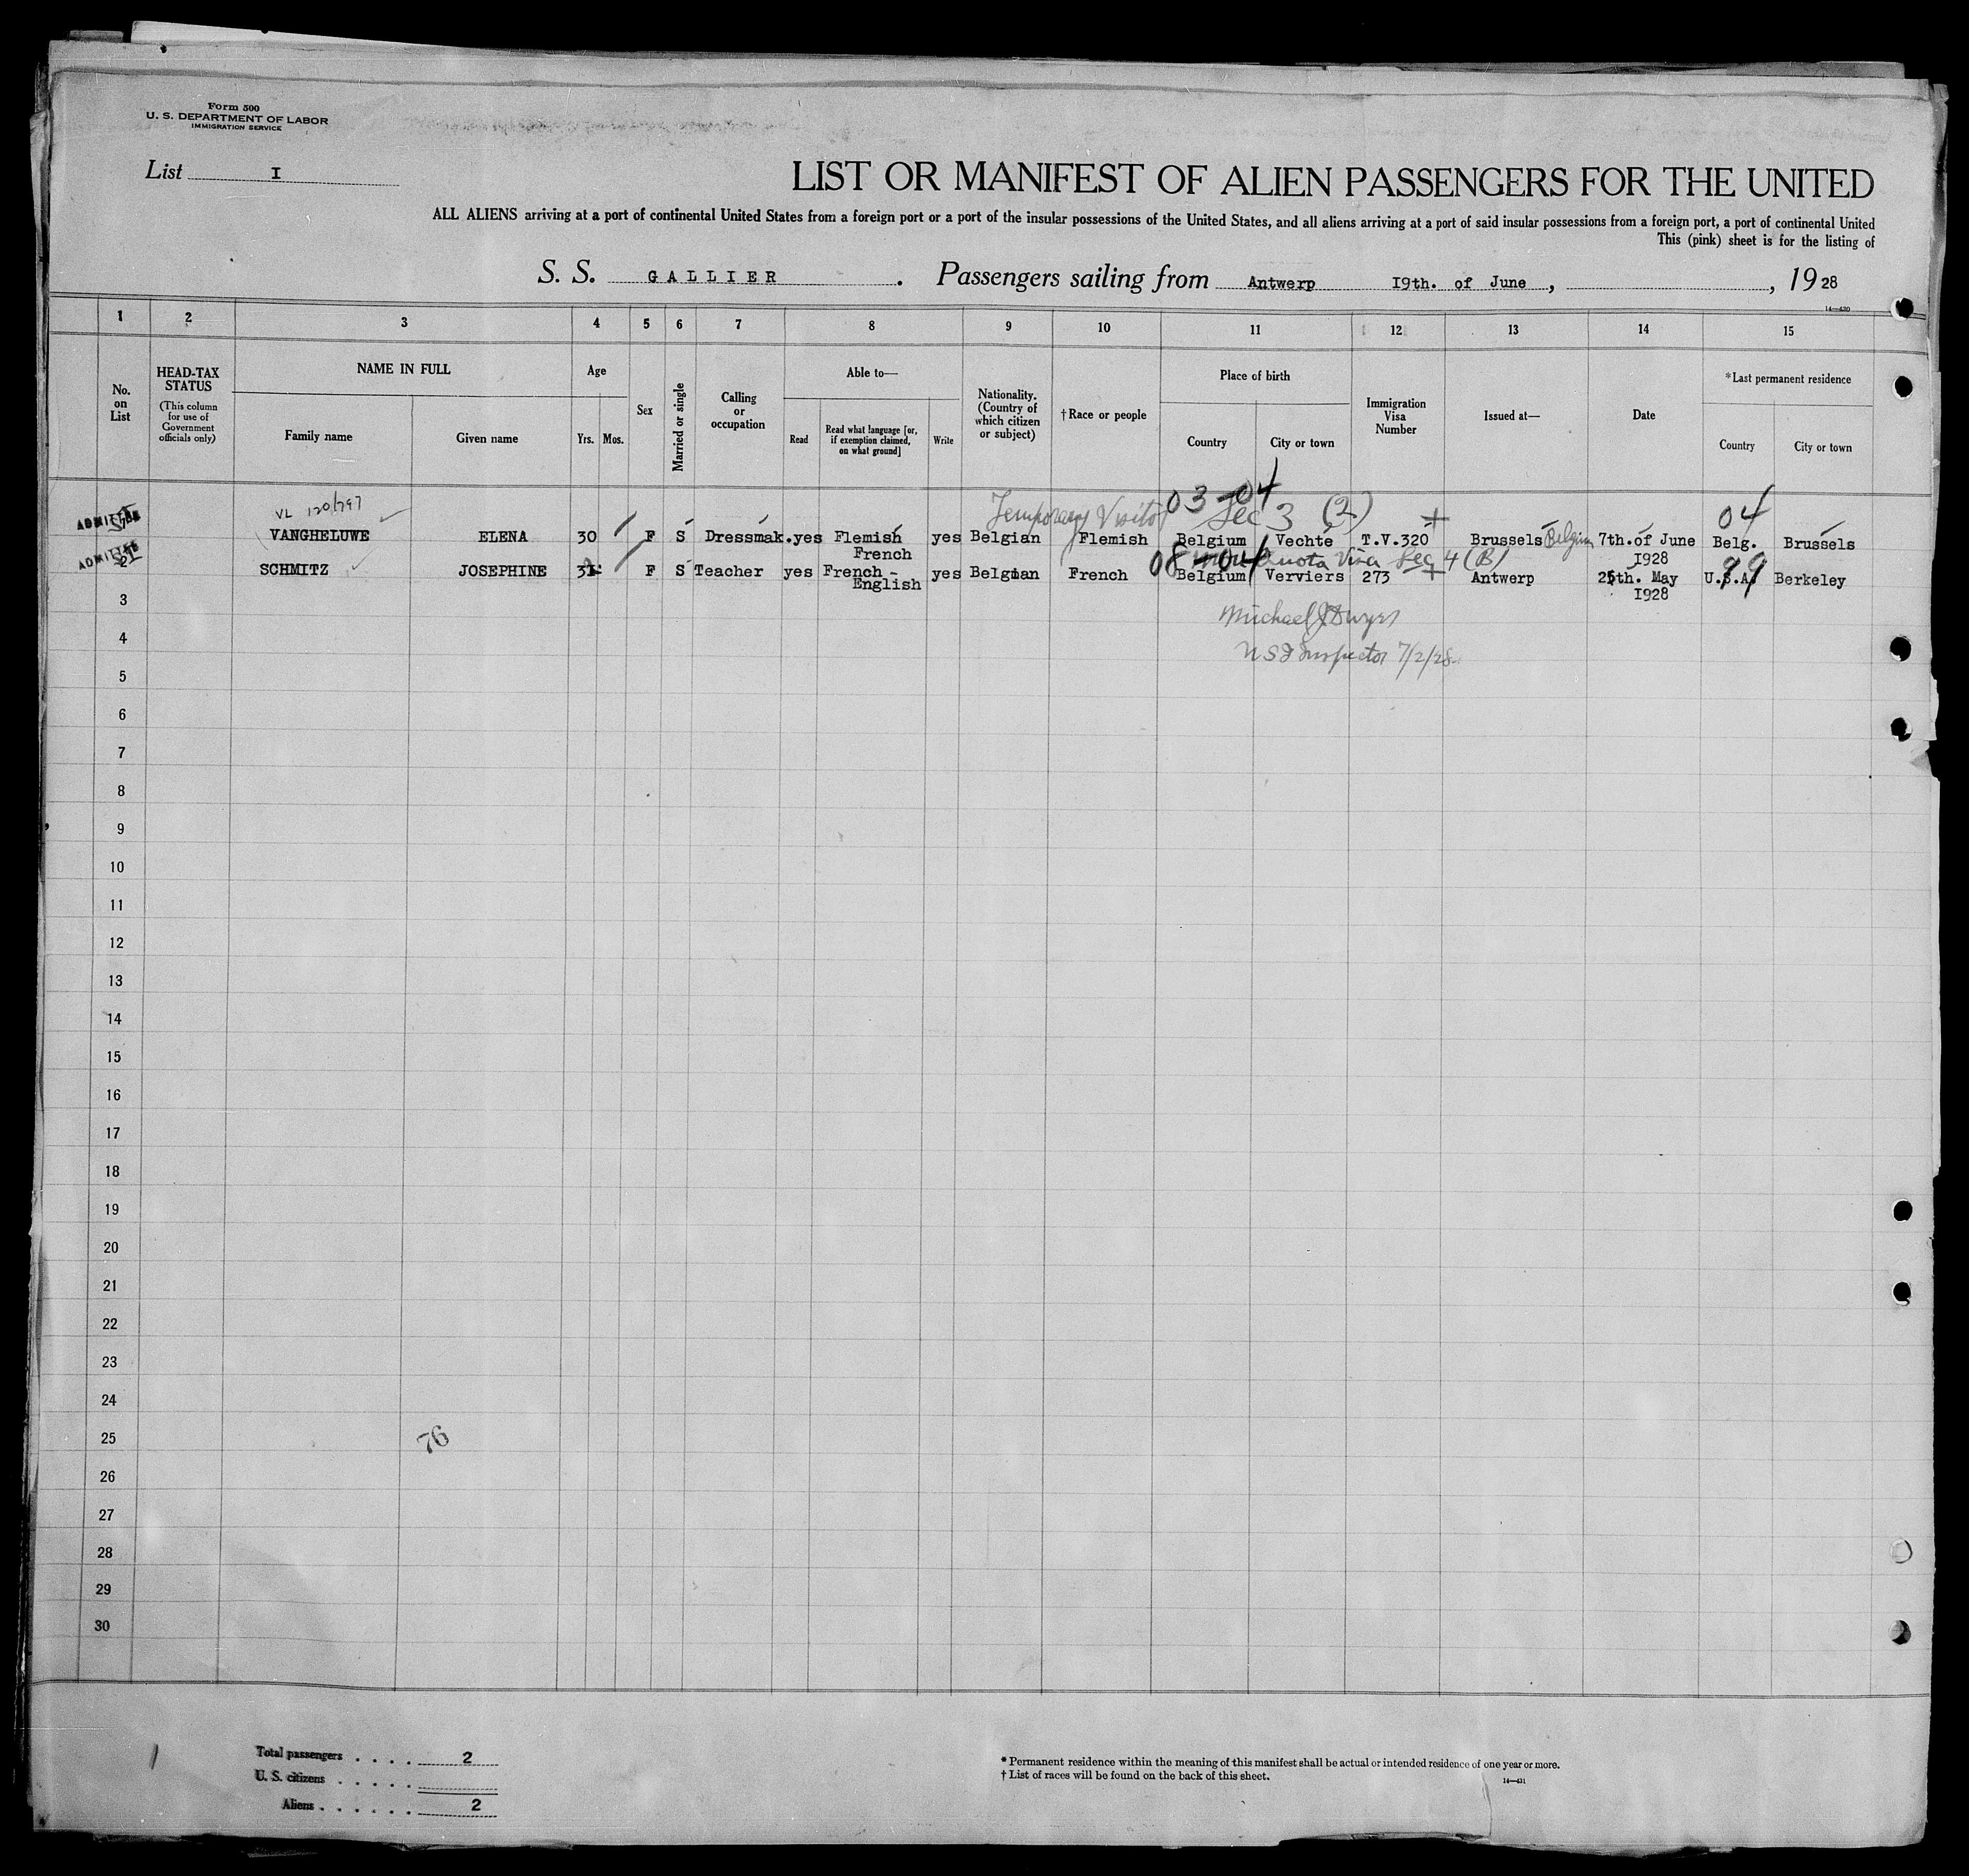 Form 500
U. S. DEPARTMENT OF LABOR
IMMIGRATION SERVICE
List I
LIST OR MANIFEST OF ALIEN PASSENGERS FOR THE UNITED
ALL ALIENS arriving at a port of continental United States from a foreign port or a port of the insular possessions of the United States, and all aliens arriving at a port of said insular possessions from a foreign port, a port of continental United
This (pink) sheet is for the listing of
S. S. GALLIER. Passengers sailing from Antwerp I9th. of June, , 19 28
14—430
1 2 3 4 5 6 7 8 9 10 11 12 13 14 15
No. on List
HEAD-TAX STATUS
(This column for use of Government officials only)
NAME IN FULL
Family name
Given name
Age
Yrs. Mos.
Sex
Married or single
Calling or occupation
Able to—
Read
Read what language [or, if exemption claimed, on what ground]
Write
Nationality. (Country of which citizen or subject)
†Race or people
Place of birth
Country
City or town
Immigration Visa Number
Issued at—
Date
*Last permanent residence
Country
City or town
VL 120/797 Temporary Visitor 03-04 Sec 3 (2) 04
ADMITTED VANGHELUWE ELENA 30 F S Dressmak. yes Flemish yes Belgian Flemish Belgium Vechte T.V.320 Brussels Belgium 7th.of June Belg. Brussels
French I928
ADMITTED 08-04 Quota Visa Sec 4 (B) 99
SCHMITZ JOSEPHINE F S Teacher yes French - yes Belgian French Belgium Verviers 273 Antwerp 25th. May U.S.A. Berkeley
English I928
3
Michael J Dwyer
4
U S I Inspector 7/2/28
5
6
7
8
9
10
11
12
13
14
15
16
17
18
19
20
21
22
23
24
25 76
26
27
28
29
30
Total passengers . . . . 2
U. S. citizens . . . . .
Aliens . . . . . . 2
* Permanent residence within the meaning of this manifest shall be actual or intended residence of one year or more.
† List of races will be found on the back of this sheet.
14—431